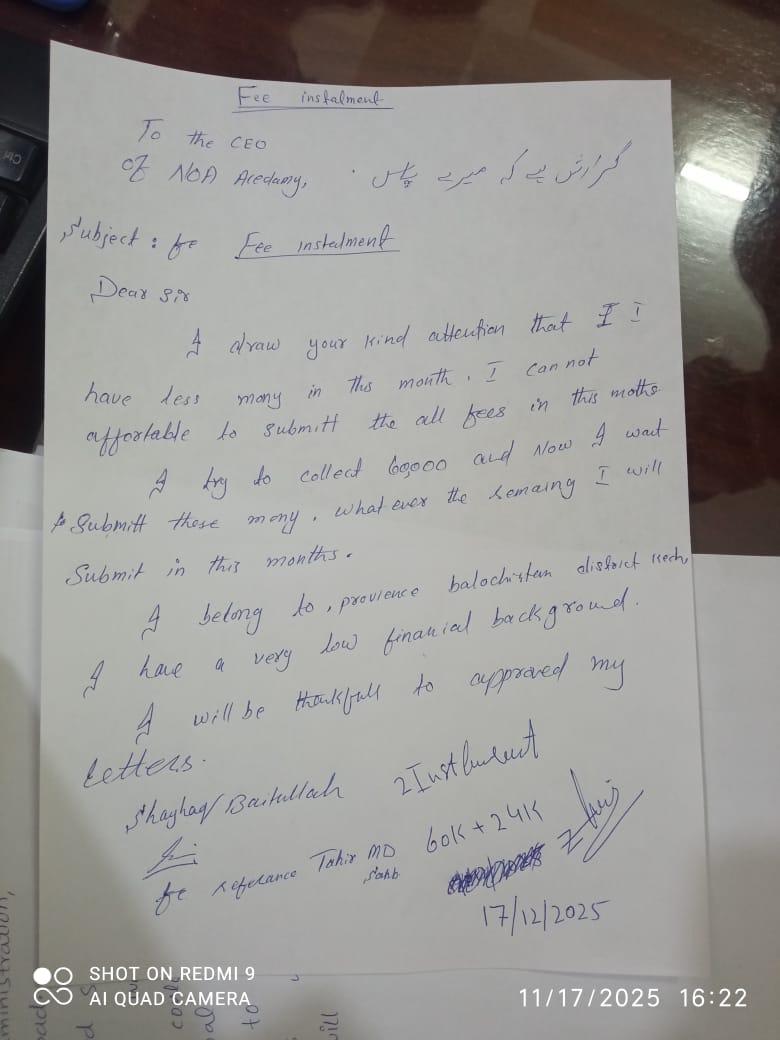 Fee instalment
To the CEO
Of NOA Acedamy,
گزارش ہے کہ میرے پاس .
Subject : for Fee instalment
Dear sir
I draw your kind attention that I I
have less mony in ths month. I can not
affortable to submitt the all fees in this moths
I try to collect 60,000 and Now I wait
Submitt these mony. what ever the remaing I will
Submit in this months.
I belong to, provience balochistan district kech,
I have a very low finanial background.
I will be thankfull to approved my
Letters.
Shayhaq Baitullah
2 Instlument
for referance Tahir MD
Sahb
60K + 24K
17/12/2025
SHOT ON REDMI 9
AI QUAD CAMERA
11/17/2025 16:22
Ctrl